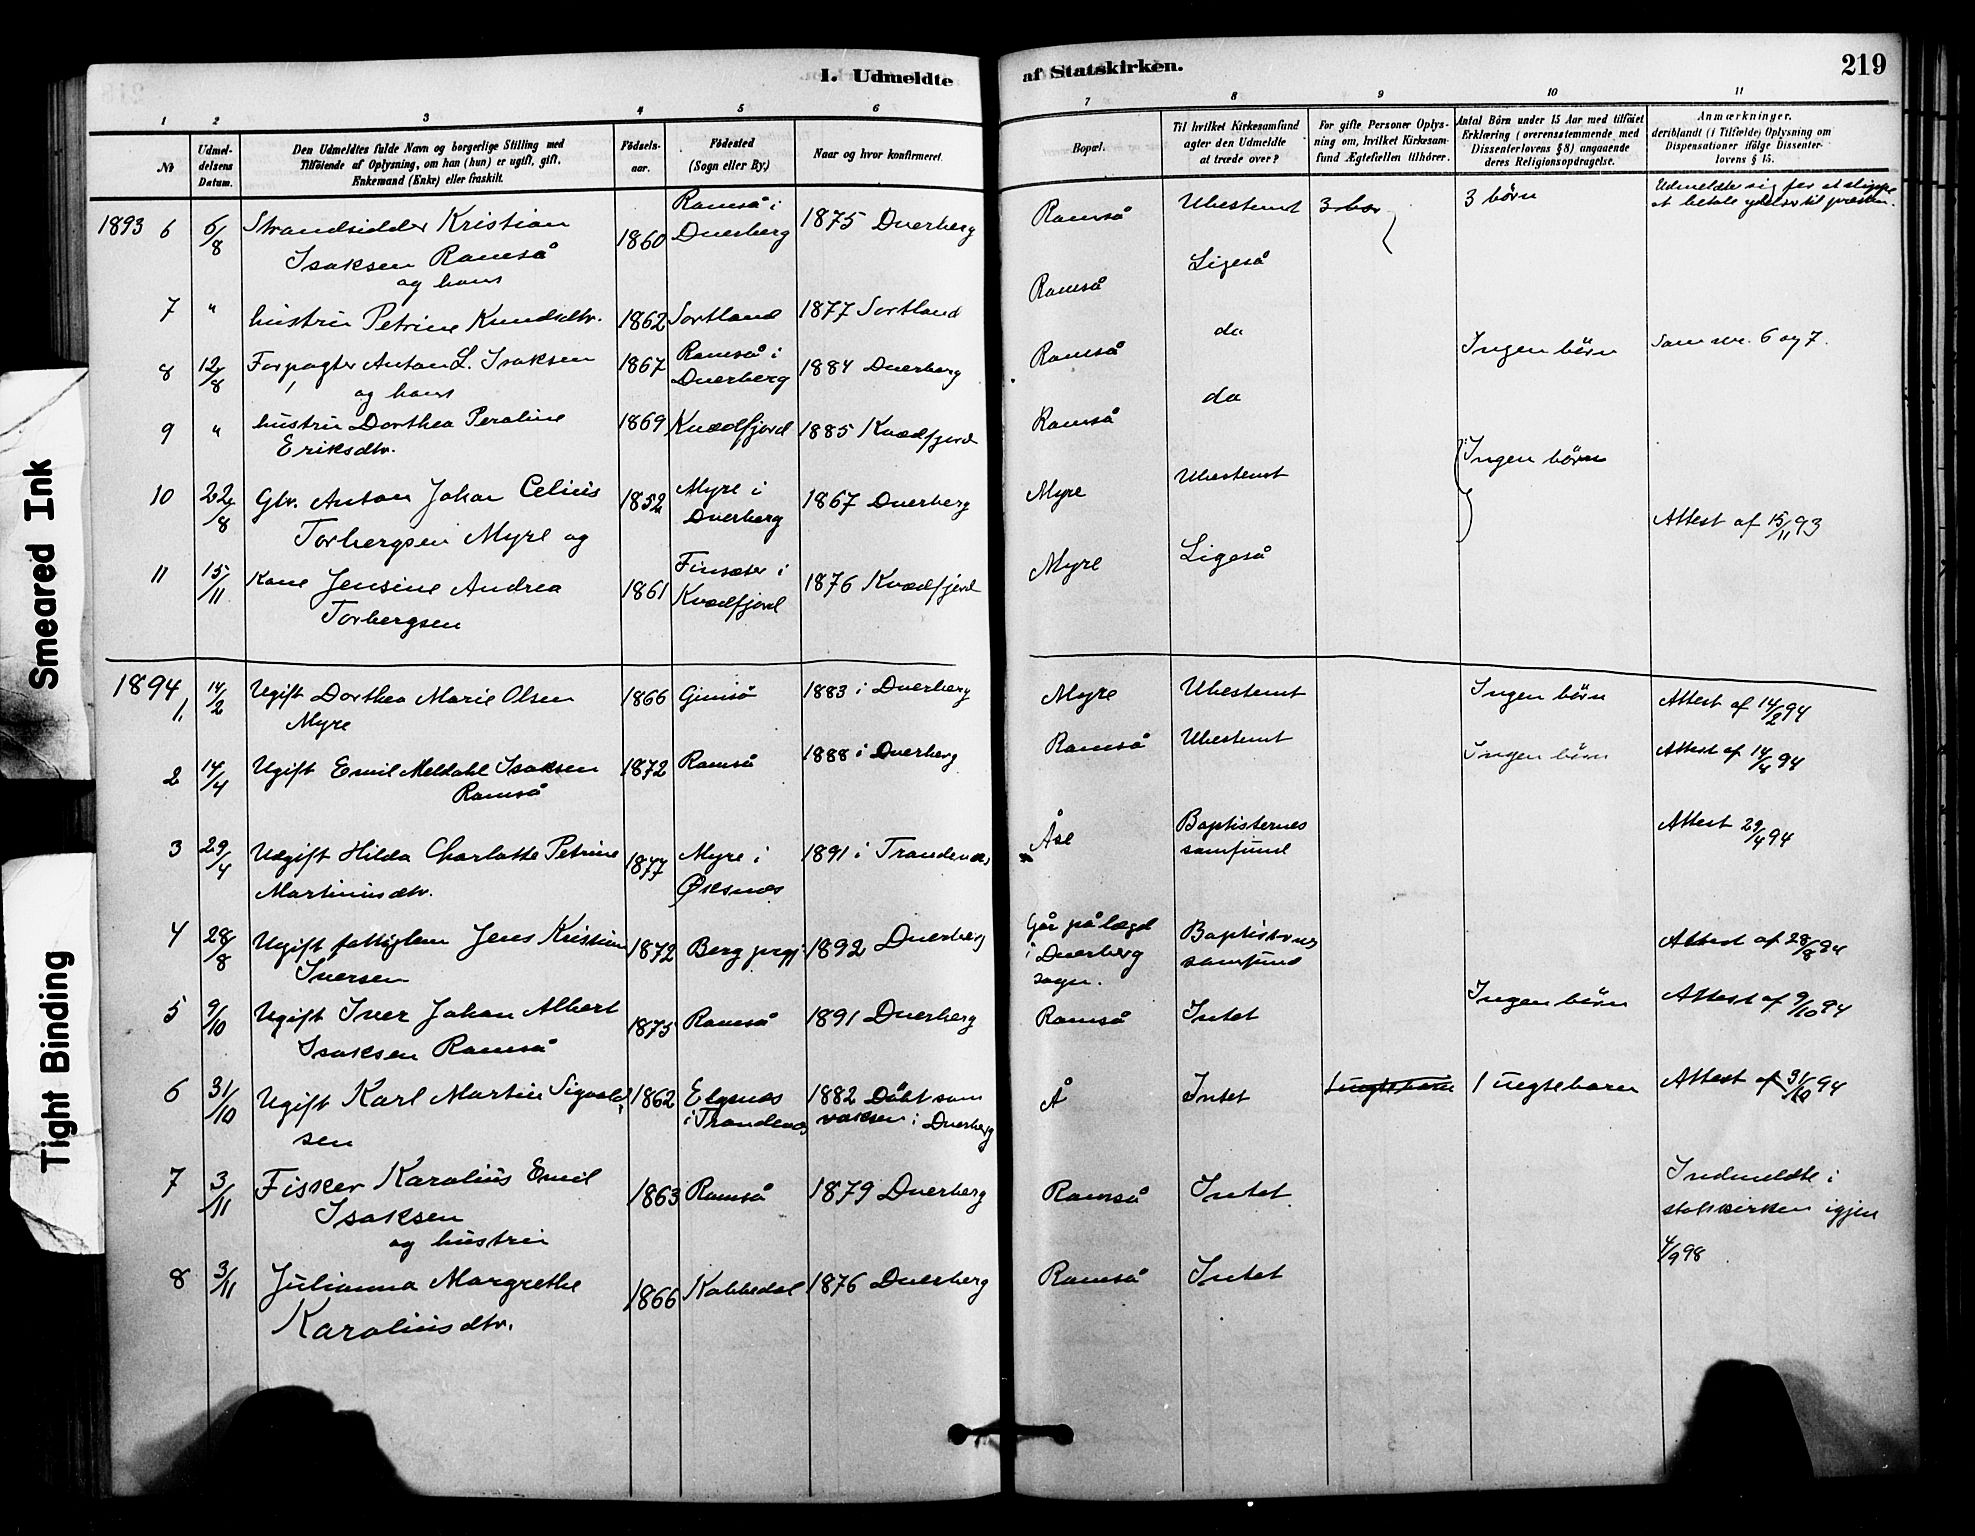 Smeared Ink
Tight Binding
1. Udmeldte
af Statskirken.
219
1 2 3 4 5 6
7 8 9 10 11
№
Udmeldelsens Datum.
Den Udmeldtes fulde Navn og borgerlige Stilling med
Tilføiende af Oplysning, om han (hun) er ugift, gift,
Enkemand (Enke) eller fraskilt.
Fødselsaar.
Fødested
(Sogn eller By.)
Naar og hvor konfirmeret.
Bopæl.
Til hvilket Kirkesamfund
agter den Udmeldte
at træde over?
For gifte Personer Oplysning om, hvilket Kirkesamfund Ægtefællen tilhører.
Antal Børn under 15 Aar med tilføiet
Erklæring (overensstemmende med
Dissenterlovens § 8) angaaende
deres Religionsopdragelse.
Anmærkninger,
deriblandt (i Tilfælde) Oplysning om
Dispensationer ifølge Dissenterlovens § 15.
1893 6 6/8 Strandsidder Kristian Isaksen Ramså og hans 1860 Ramså i Dverberg 1875 Dverberg Ramså Ubestemt 3 bør 3 børn Udmeldte sig for at slippe at betale ydelser til præsten.
7 " hustru Petrine Knudsdtr. 1862 Sortland 1877 Sortland Ramså Ligeså
8 12/8 Forpagter Anton L. Isaksen og hans 1867 Ramså i Dverberg 1884 Dverberg Ramså do Ingen børn Som nr. 6 og 7.
9 " hustru Dorthea Peroline Eriksdtr. 1869 Kvædfjord 1885 Kvædfjord Ramså do
10 22/8 Gbr. Anton Johan Celius Torbergsen Myre og 1852 Myre i Dverberg 1867 Dverberg Myre Ubestemt Ingen børn
11 15/11 Kone Jensine Andrea Torbergsen 1861 Finsæter i Kvædfjord 1876 Kvædfjord Myre Ligeså Attest af 15/11 93
1894 1. 14/2 Ugift Dorthea Marie Olsen Myre 1866 Gimsø 1883 i Dverberg Myre Ubestemt Ingen børn Attest af 14/2 94
2 14/4 Ugift Emil Meldahl Isaksen Ramså 1872 Ramså 1888 i Dverberg Ramså Ubestemt Ingen børn Attest af 14/4 94
3 29/4 Ugift Hilda Charlotte Petrine Martinusdtr. 1877 Myre i Øksnes 1891 i Trondenæs Åse Baptisternes samfund Attest 29/4 94
4 28/8 Ugift fattiglem Jens Kristian Iversen 1872 Berg prgj. 1892 Dverberg Går på lægd i Dverberg sogn. Baptisternes samfund Attest af 28/8 94
5 9/10 Ugift Iver Johan Albert Isaksen Ramså 1875 Ramså 1891 Dverberg Ramså Intet Ingen børn Attest af 9/10 94
6 31/10 Ugift Karl Martin Sigvaldsen 1862 Elgsnæs i Trondenæs 1882 Døbt som voksen i Dverberg Å Intet 1 uægtebarn 1 uægtebarn Attest af 31/10 94
7 3/11 Fisker Karolius Emil Isaksen og hustru 1863 Ramså 1879 Dverberg Ramså Intet Indmeldte i statskirken igjen 4/9 98
8 3/11 Julianna Margrethe Karoliusdtr. 1866 Kobbedal 1876 Dverberg Ramså Intet